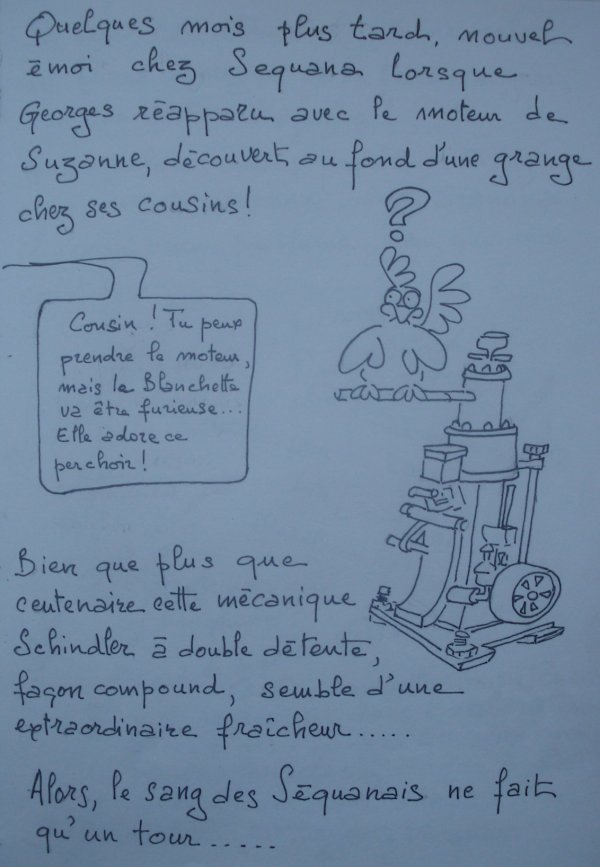 Quelques mois plus tard, nouvel
émoi chez Sequana lorsque
Georges réapparu avec le moteur de
Suzanne, découvert au fond d'une grange
chez ses cousins!
?
Cousin! Tu peux
prendre le moteur,
mais la Blanchette
va être furieuse...
Elle adore ce
perchoir!
Bien que plus que
centenaire cette mécanique
Schindler à double détente,
façon compound, semble d'une
extraordinaire fraîcheur.....
Alors, le sang des Séquanais ne fait
qu'un tour.....